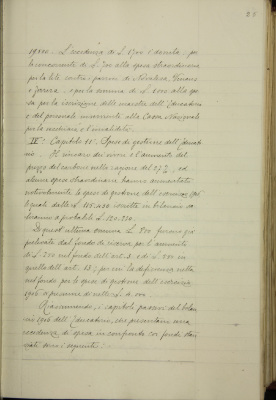 28
19100. L'eccedenza di L. 1700 è dovuta: pe
la concorrente di L. 700 alle spese straordinarie
per la lite contro i parroci di
e e per la somma di L. 1000 alla spe
sa per la iscrizione delle maestre dell'Educatorio
e del personale inserviente alla Cassa Nazionale
per la vecchiaia e l'invalidità.
IIº Capitolo 11º. Spese di gestione dell'Educato
rio. Il rincaro dei viveri e l'aumento del
prezzo del carbone nella ragione del 25%, ed
alcune spese straordinarie, hanno aumentato
notevolmente le spese di gestione dell'esercizio 1906
le quali dalle L. iscritte in bilancio a
scenderanno a probabili L. 120.220.
Di quest'ultima somma L. 800 furono già
prelevate dal fondo di riserva, per l'aumento
di L. nel fondo dell'art. 2 e di L.
quello dell'art. 15; per cui la differenza nella
nel fondo per le spese di gestione dell'esercizio
1906 a presume di nette L.
Riassumendo, i capitoli passivi del bilan
cio 1906 dell'Educatorio, che presentano una
eccedenza di spesa in confronto coi fondi stan
ziati sono i seguenti: